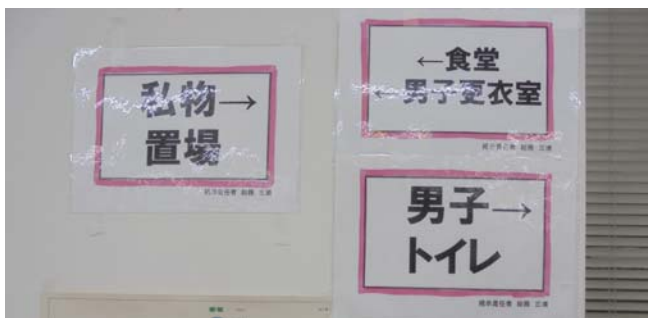 私物→
置場
←食堂
←男子更衣室
男子→
トイレ